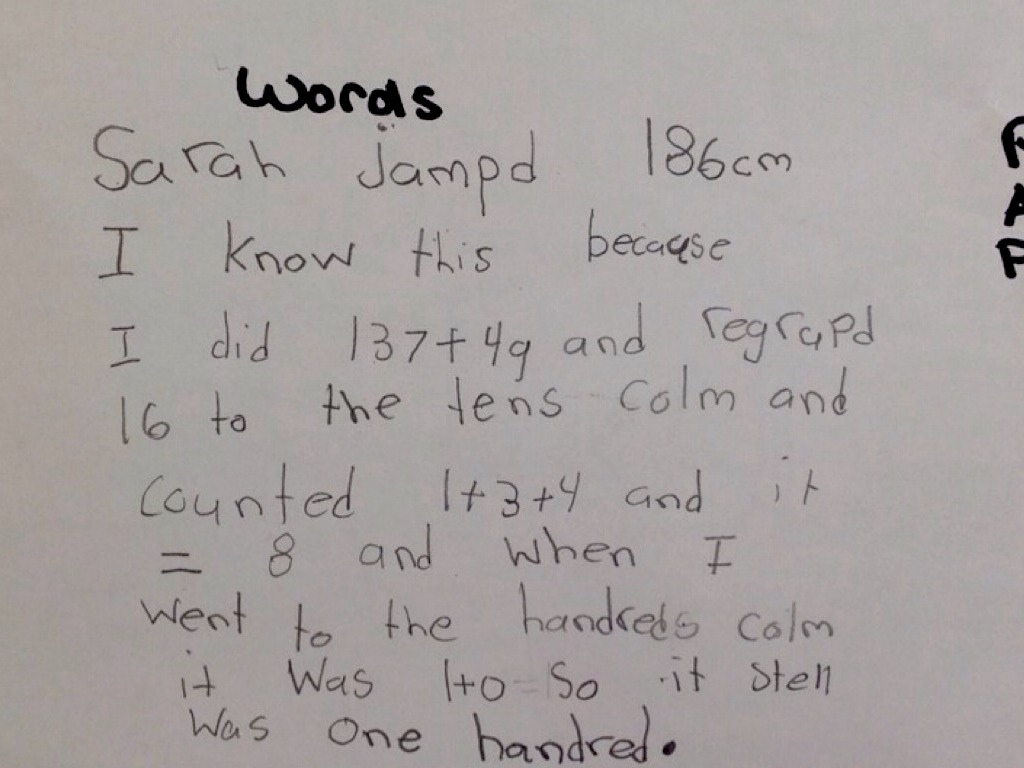 Words
Sarah jampd 186cm
I know this because
I did 137+49 and regrupd
16 to the tens colm and
counted 1+3+4 and it
= 8 and when I
went to the handreds colm
it was 1+0 = so it stell
was one handred.
R
A
P